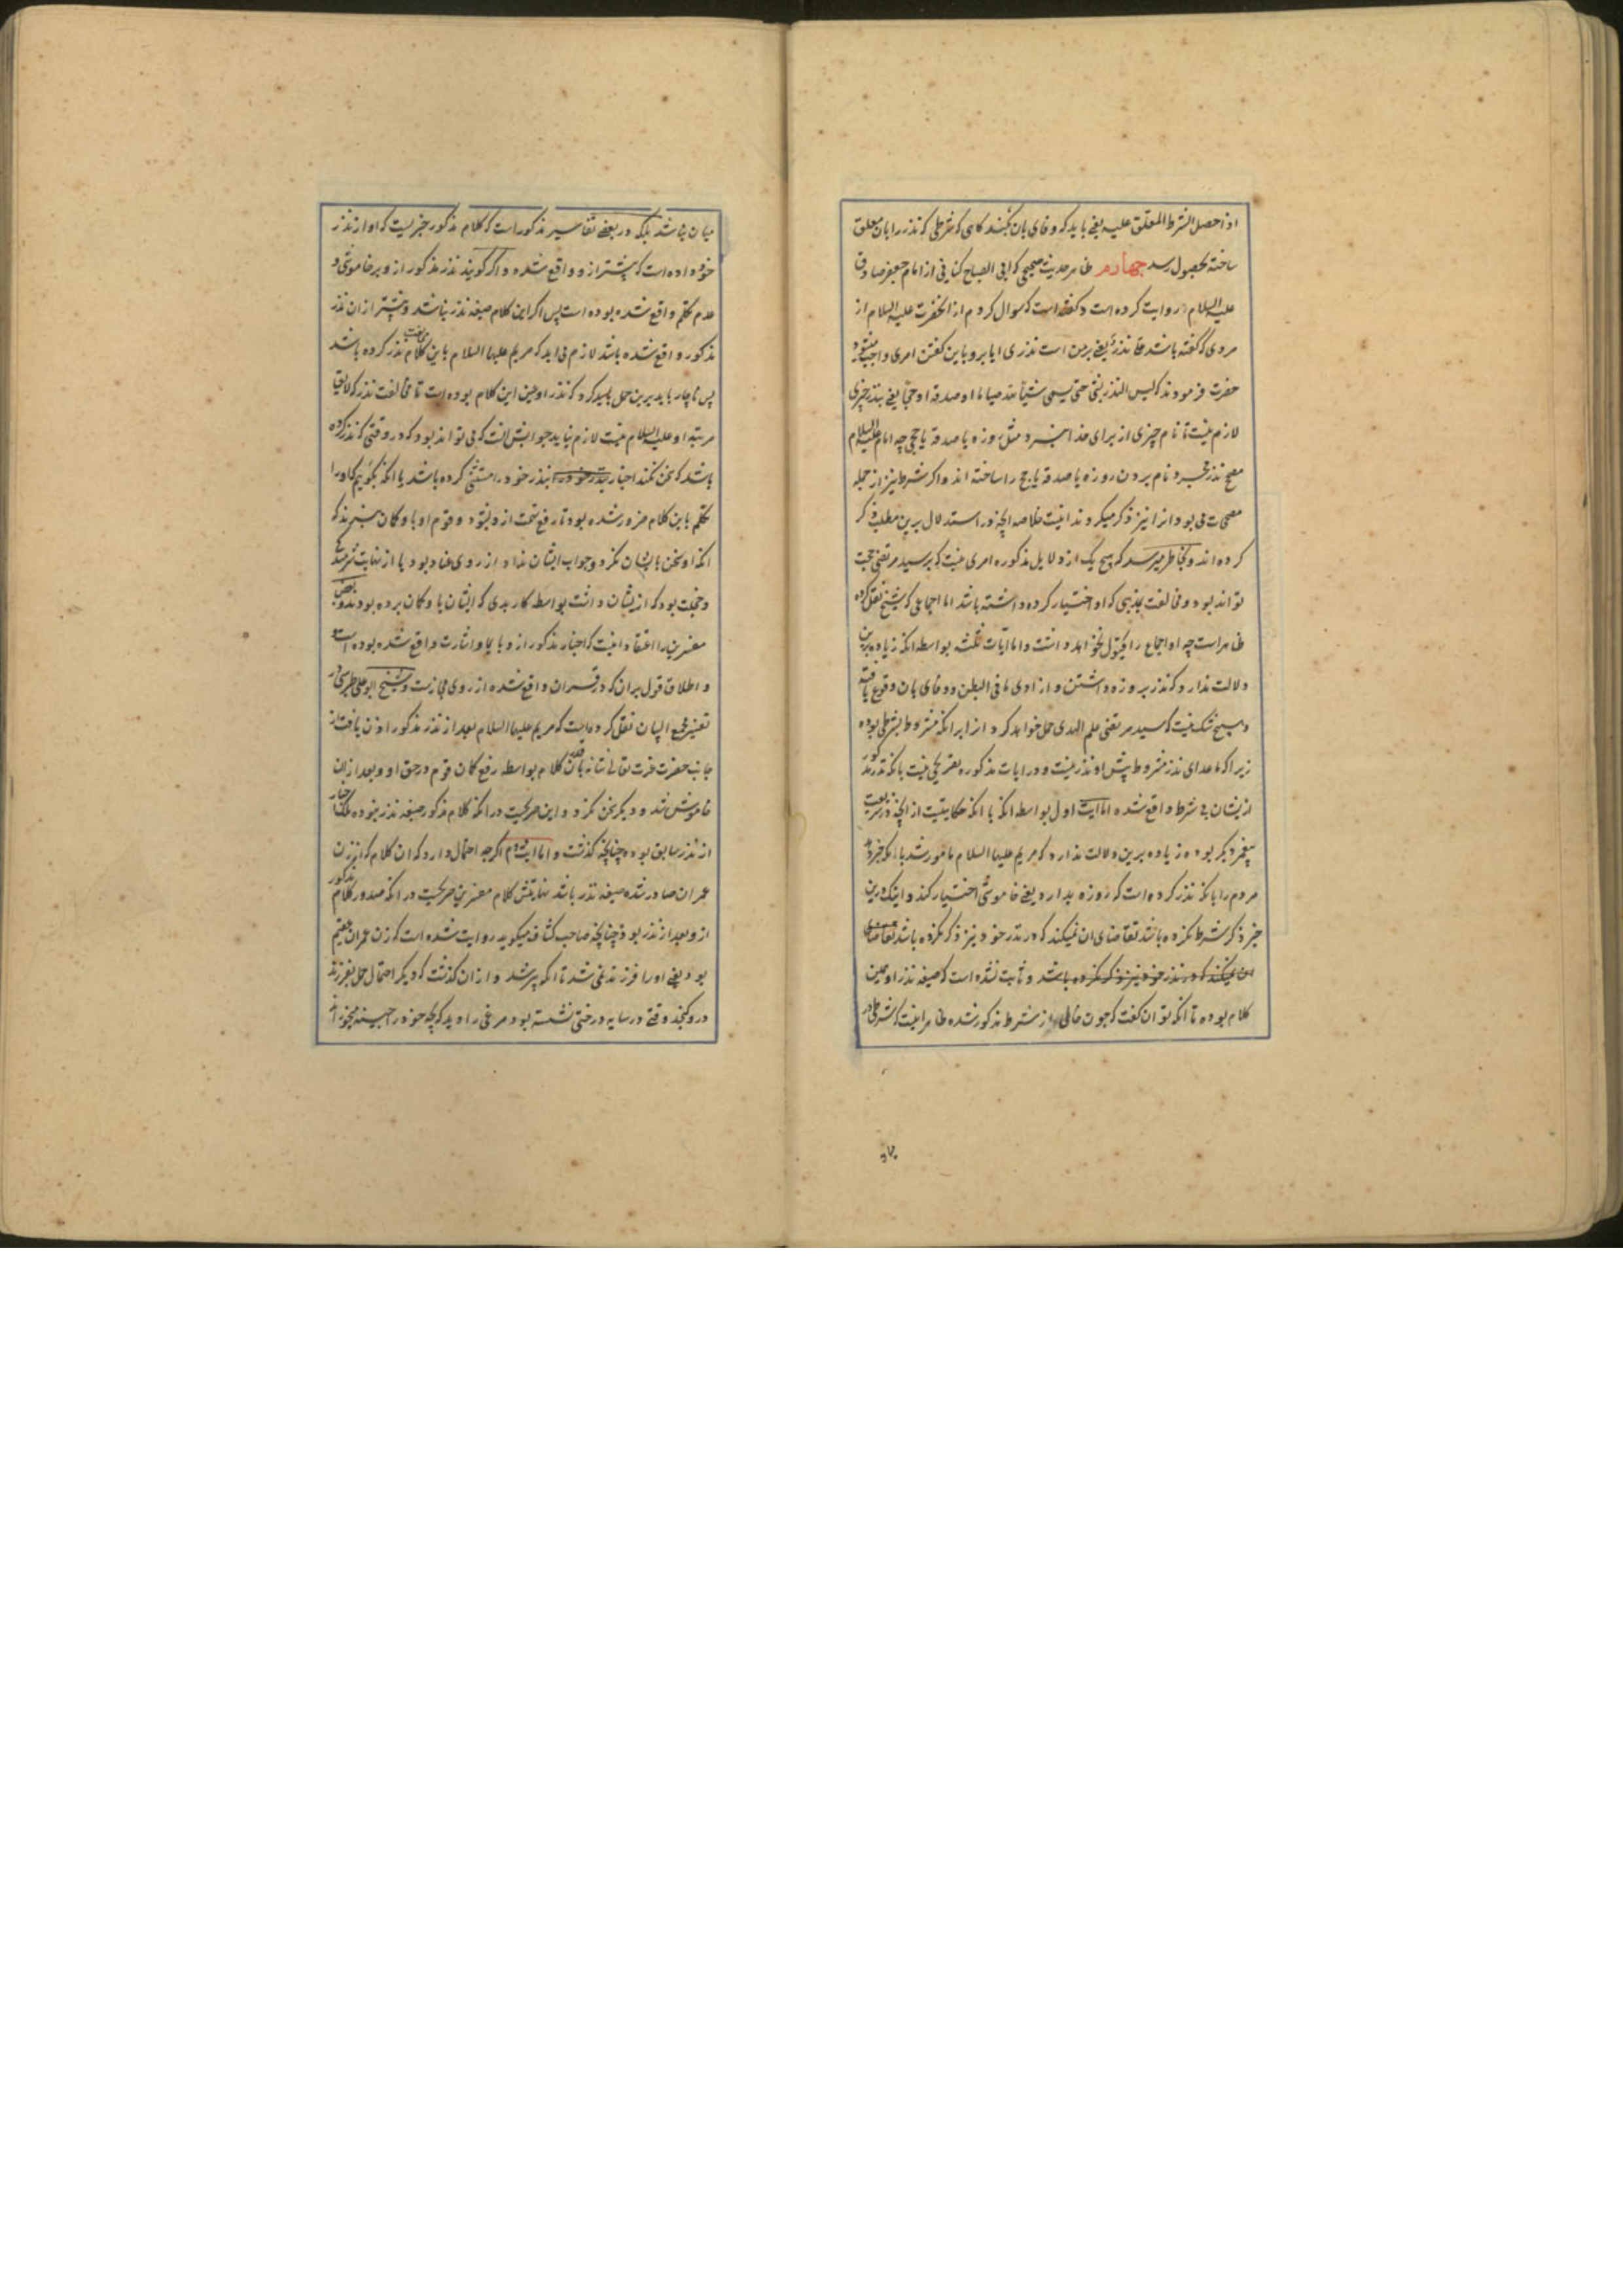 اذا حصل الشرط المعلق علیه یعنی باید که وفای بان بکنند کاهی که شرطی که نذر را بان معلق
ساخته بحصول رسد چهارم ظاهر حدیث صحیحی که ابی الصباح کنانی از امام جعفر صادق
علیه السلام روایت کرده است و کفته است که سوال کردم از انحضرت علیه السلام از
مردی که کفته باشد علی نذر یعنی برمن است نذری ایا برو باین کفتن امری واجب میشود
حضرت فرمودند که لیس النذر بشی حتی یسمی شیئا لله صیاما او صدقة او حجا یعنی نذر چیزی
لازم نیست تا نام چیزی از برای خدا نبرد مثل روزه یا صدقه یا حجی چه امام علیه السلام
مصحح نذر مجرد نام بردن روزه یا صدقه یا حج را ساخته اند و اکر شرط نیز از جمله
مصححات می بود انرا نیز ذکر میکردند اینست خلاصه انچه در استدلال برین مطلب ذکر
کرده اند و بخاطر میرسد که هیچ یک از دلایل مذکوره امری نیست که بر سید مرتضی حجت
تواند بود و مخالفت مذهبی که او اختیار کرده داشته باشد اما اجماعی که شیخ نقل کرده
ظاهر است چه او اجماع را قبول نخواهد داشت و اما ایات ثلثه بواسطه انکه زیاده برین
دلالت ندارد که نذر بروزه داشتن و ازادی ما فی البطن و وفای بان وقوع یافته
و هیچ شک نیست که سید مرتضی علم الهدی حمل خواهد کرد انرا برانکه مشروط بشرطی بوده
زیرا که ماعدای نذر مشروط پیش او نذر نیست و در ایات مذکوره تصریحی نیست بانکه نذر مذکور
ازیشان بی شرط واقع شده اما ایت اول بواسطه انکه با انکه حکایتیست از انچه در شریعت
پیغمبر دیکر بوده زیاده برین دلالت ندارد که مریم علیها السلام مامور شد بانکه خبر دهد
مردم را بانکه نذر کرده است که روزه بدارد یعنی خاموشی اختیار کند و اینکه درین
خبر ذکر شرط نکرده باشد تقاضای ان نمیکند که در نذر خود نیز ذکر نکرده باشد تقاضای
ان نمیکند که در نذر خود نیز ذکر نکرده باشد و ثابت نشده است که صیغه نذر او همین
کلام بوده تا انکه توان کفت که چون خالی از شرط مذکور شده ظاهر اینست که شرطی در
میان نباشد بلکه در بعضی تفاسیر مذکور است که کلام مذکور خبریست که او از نذر
خود داده است که پیشتر ازو واقع شده و اکر کویند نذر مذکور ازو بر خاموشی و
عدم تکلم واقع شده بوده است پس اکر این کلام صیغه نذر نباشد و پیشتر ازان نذر
مذکور واقع شده باشد لازم می اید که مریم علیها السلام باین کلام مخالفت نذر کرده باشد
پس ناچار باید برین حمل باید کرد که نذر او عین این کلام بوده است تا مخالفت نذر که لایق
مرتبه او علیه السلام نیست لازم نیاید جوابش انست که می تواند بود که در وقتی که نذر کرده
باشد که سخن نکند اخبار بنذر خود را بنذر خود را مستثنی کرده باشد یا انکه بکوییم که او را
تکلم باین کلام ضرور شده بود تا رفع تهمت ازو بشود و قوم او باو کان نبرند که
انکه او سخن با ایشان نکرد و جواب ایشان نداد از روی عناد بود یا از نهایت شرمندکی
و خجلت بود که ازیشان داشت بواسطه کار بدی که ایشان باو کان برده بودند و بعضی
مفسرین را اعتقاد اینست که اخبار مذکور ازو بایما و اشارت واقع شده بوده است
و اطلاق قول بران که در قران واقع شده از روی مجاز است و شیخ ابو علی طبرسی در
تفسیر مجمع البیان نقل کرده است که مریم علیها السلام بعد از نذر مذکور اذن یافت از
جانب حضرت عزت تعالی شانه باین قدر کلام بواسطه رفع کان قوم در حق او و بعد ازان
خاموش شد و دیکر سخن نکرد و این صریحست در انکه کلام مذکور صیغه نذر نبوده بلکه اخبار
از نذر سابق بوده چنانچه کذشت و اما ایت دوم اکرچه احتمال دارد که ان کلام که از زن
عمران صادر شده صیغه نذر باشد نهایتش کلام مفسرین صریحست در انکه صدور کلام مذکور
ازو بعد از نذر بود چنانچه صاحب کشاف میکوید روایت شده است که زن عمران عقیم
بود یعنی او را فرزند نمی شد تا انکه پیر شد و ازان کذشت که دیکر احتمال حمل بفرزند
درو کنجد وقتی در سایه درختی نشسته بود مرغی را دید که بچه خود را